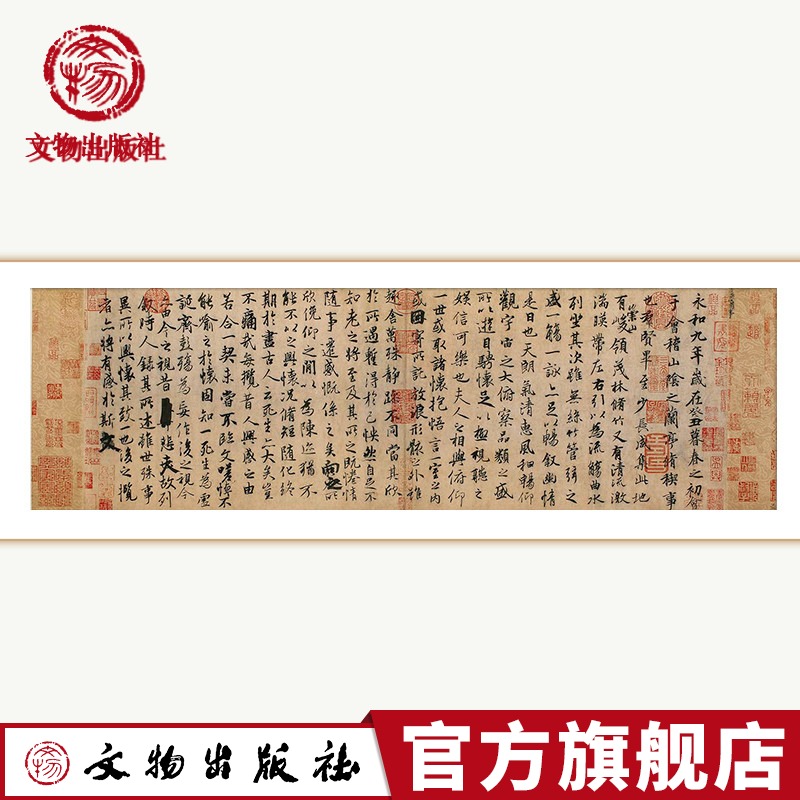 文物
文物出版社
永和九年歲在癸丑暮春之初會
于會稽山陰之蘭亭脩稧事
也羣賢畢至少長咸集此地
有崇山峻領茂林脩竹又有清流激
湍暎帶左右引以為流觴曲水
列坐其次雖無絲竹管弦之
盛一觴一詠亦足以暢敘幽情
是日也天朗氣清惠風和暢仰
觀宇宙之大俯察品類之盛
所以遊目騁懷足以極視聽之
娛信可樂也夫人之相與俯仰
一世或取諸懷抱悟言一室之內
或因寄所託放浪形骸之外雖
趣舍萬殊靜躁不同當其欣
於所遇暫得於己怏然自足不
知老之將至及其所之既惓情
隨事遷感慨係之矣向之所
欣俛仰之閒以為陳迹猶不
能不以之興懷況脩短隨化終
期於盡古人云死生亦大矣豈
不痛哉每攬昔人興感之由
若合一契未嘗不臨文嗟悼不
能喻之於懷固知一死生為虛
誕齊彭殤為妄作後之視今
亦由今之視昔悲夫故列
敘時人錄其所述雖世殊事
異所以興懷其致一也後之攬
者亦將有感於斯文
文物
文物出版社
官方旗舰店